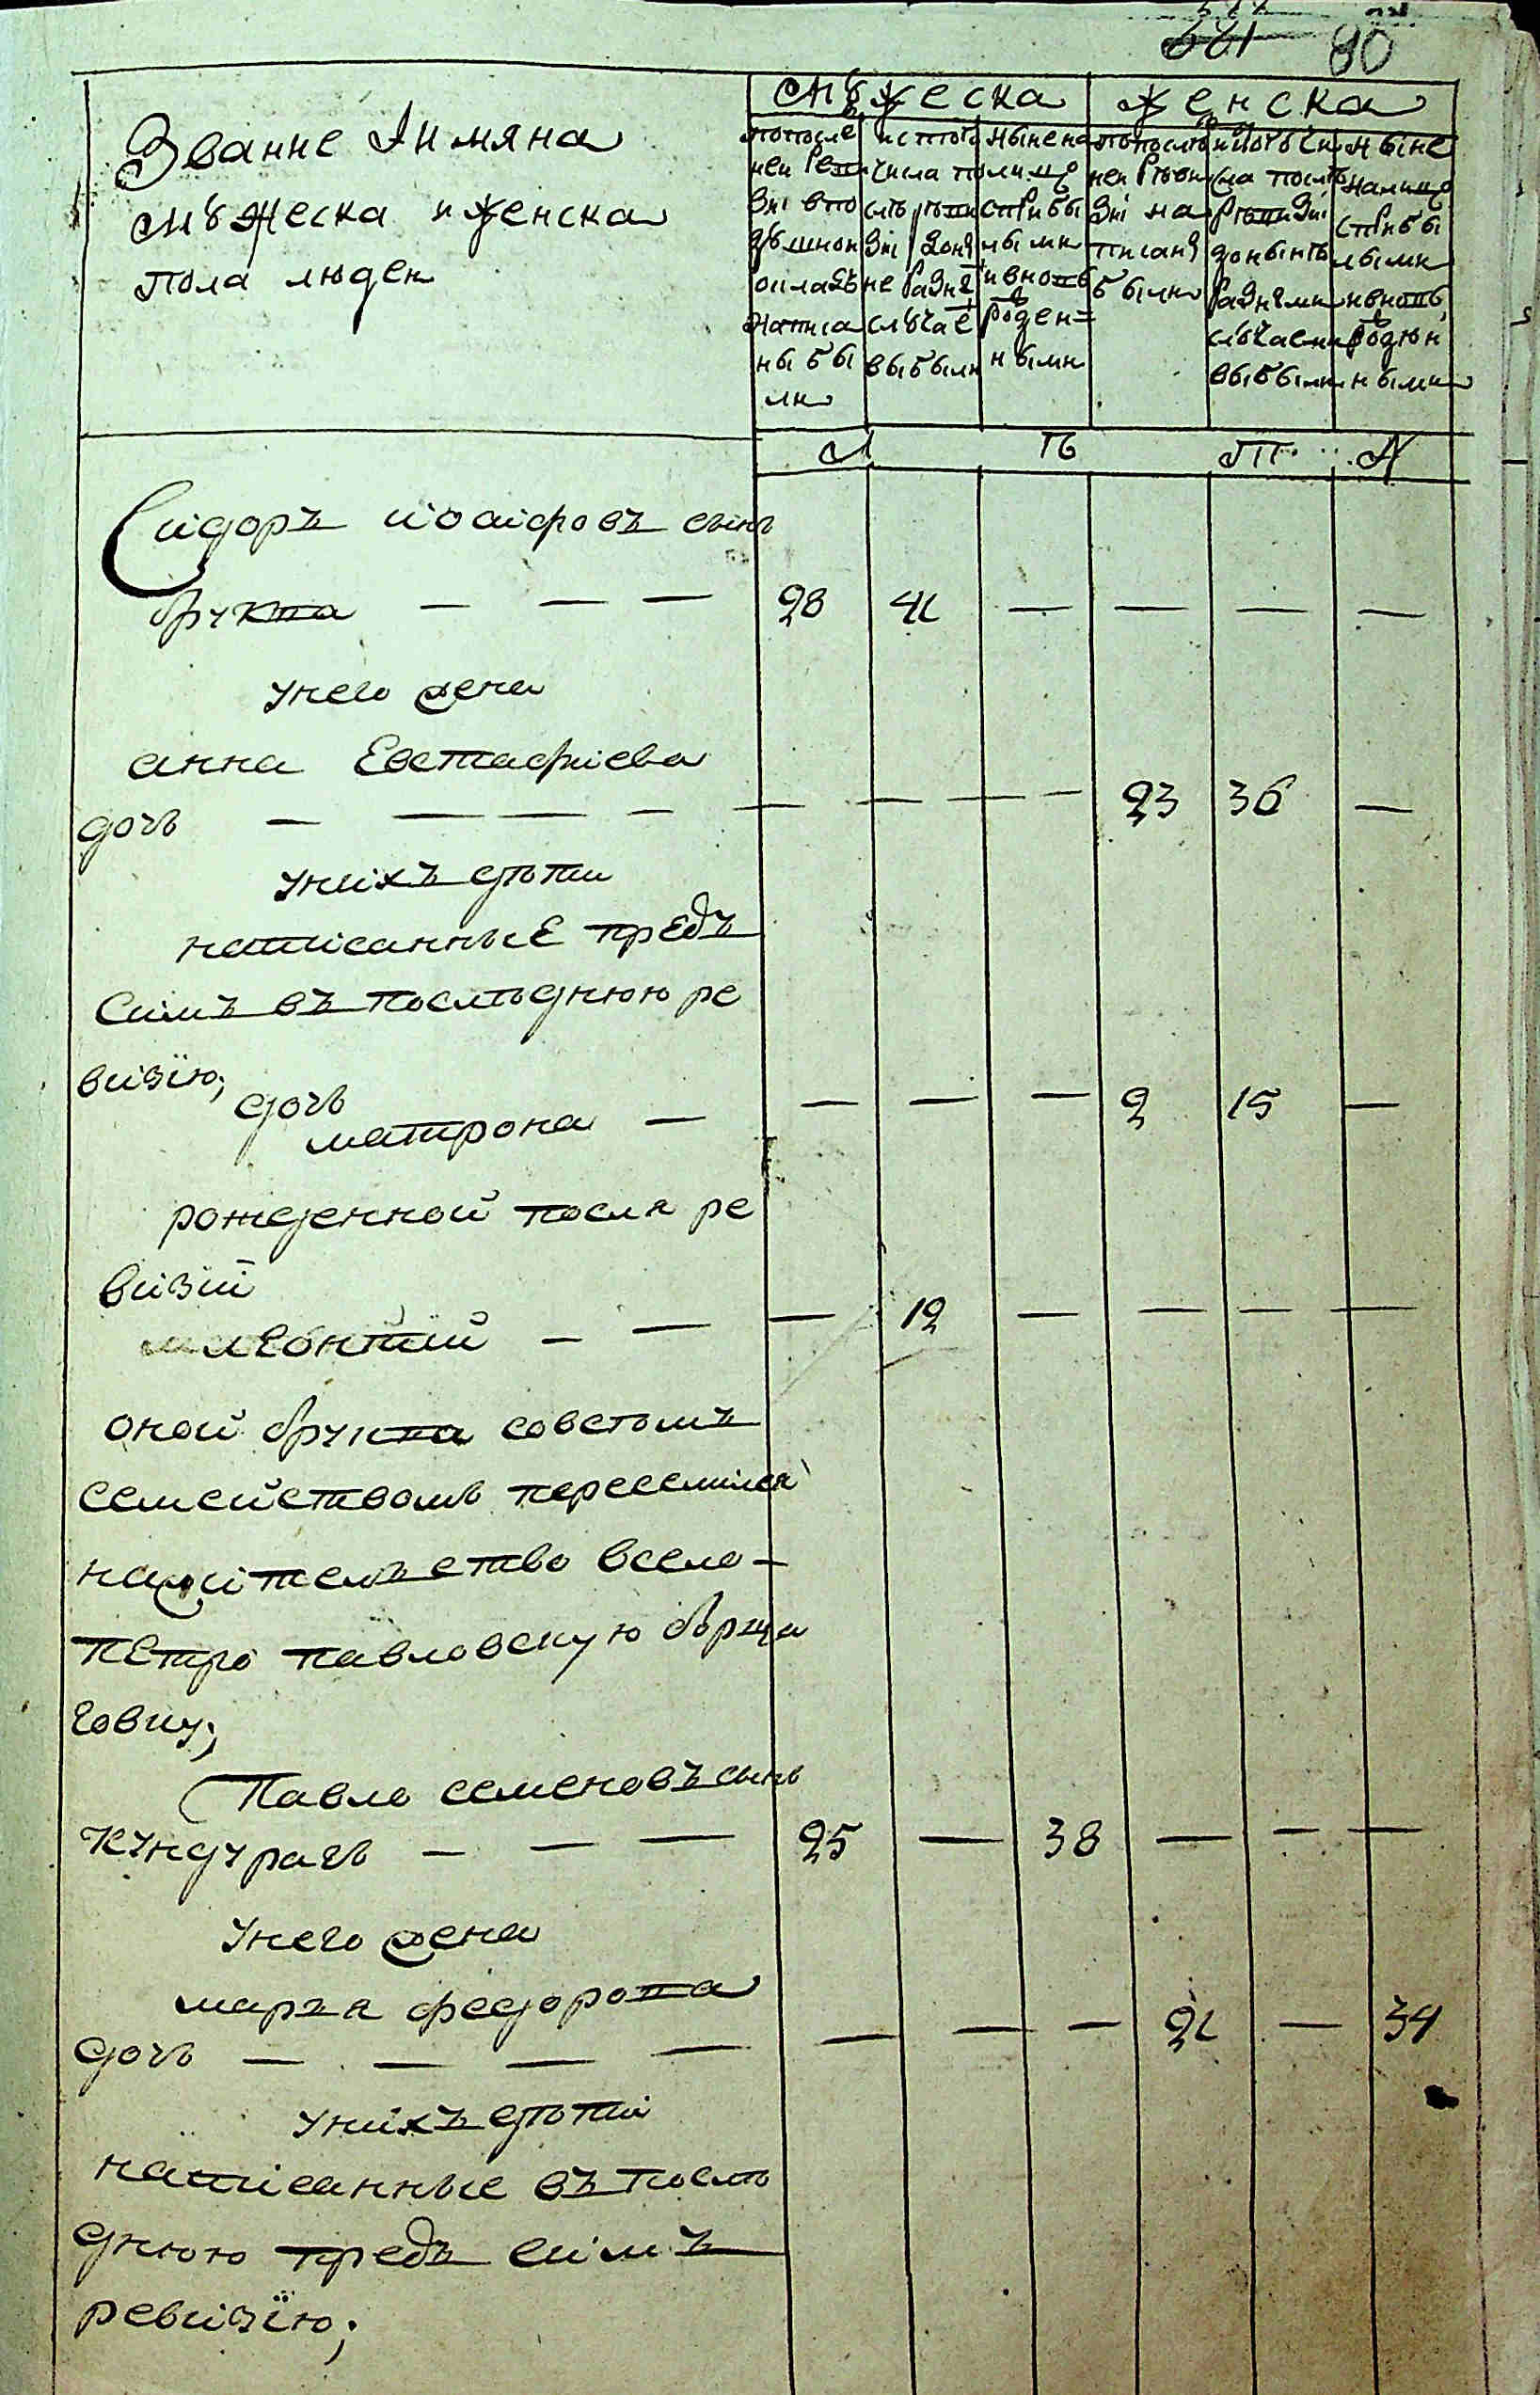 661 90
Мужеска Женска
Звание Ѵ имяна
мужеска и женска
пола людеи
попосле
ней Реви
зиі впо
душной
окладъ
написа
ны бы
ли
ис того
числа по
слѣ реви
зіи доны
не разны
случаѣ
выбыли
ныне на
лицо
с прибы
лыми
ивновь
рожден=
ными
по послѣд
ней Реви
зіи на
писаны
были
и того чи
сла послѣ
ревизіи
до нынѣ
разными
случаеми
выбыли
ныне
налицо
с прибы
лыми
ивновь
рожден
ными
Л П Л Д
Сидоръ иосифовъ сынъ
бруква — — — 28 41 — — — —
унего жена
анна Евстафиева
дочь — — — — — — — — 23 36 —
унихъ дѣти
написанные предъ
симъ въ последнюю ре
визїю;
дочь
матрона — — — — 2 15 —
рожденной после ре
визїи
леонтий — — — 12 — — — —
оной бруква совсемъ
семействомъ переселился
нажителъство всело-
петро павловскую борща
говку;
Павло семеновъ сынъ
кундурачъ — — — 25 — 38 — — —
унего жена
марья федорова
дочь — — — — — — — 21 — 34
унихъ дѣти
написанные въ послѣ
днюю предъ симъ
ревизїю;